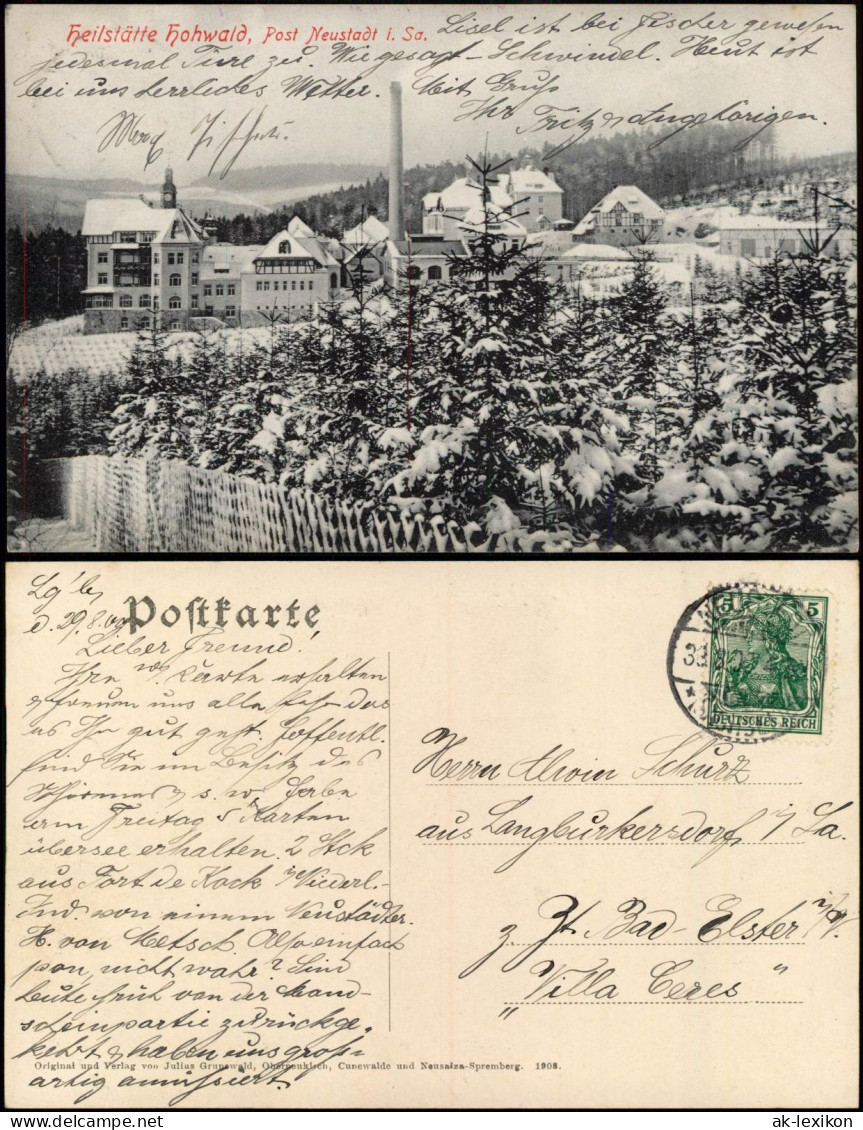 Heilstätte Hohwald, Post Neustadt i. Sa.
Lisel ist bei Fischer gewesen
jedesmal Türe zu. Wie gesagt – Schwindel. Heut ist
bei uns herrliches Wetter. Mit Gruß
Ihr Fritz & Angehörigen.
Postkarte
d. 29.8.09
Lieber Freund!
Ihre Karte erhalten
& freuen uns alle sehr das
es Ihn gut geht. Hoffentl.
sind Sie im Besitz des
u. s. w. Habe
am Freitag 5 Karten
übersee erhalten. 2 Stck
aus Fort de Kock i/Niederl.-
Ind. von einem Neustädter.
H. von Metsch. Also einfach
pon, nicht wahr? Sind
heute früh von der Mond-
scheinpartie zurückge-
kehrt & haben uns groß-
artig amüsiert.
5 5
DEUTSCHES REICH
Herrn Alwin Schurz
aus Langburkersdorf i/Sa.
z. Zt. Bad-Elster i/V.
"Villa Ceres"
Original und Verlag von Julius Grunewald, Oberneukirch, Cunewalde und Neusalza-Spremberg. 1908.
ak-lexikon